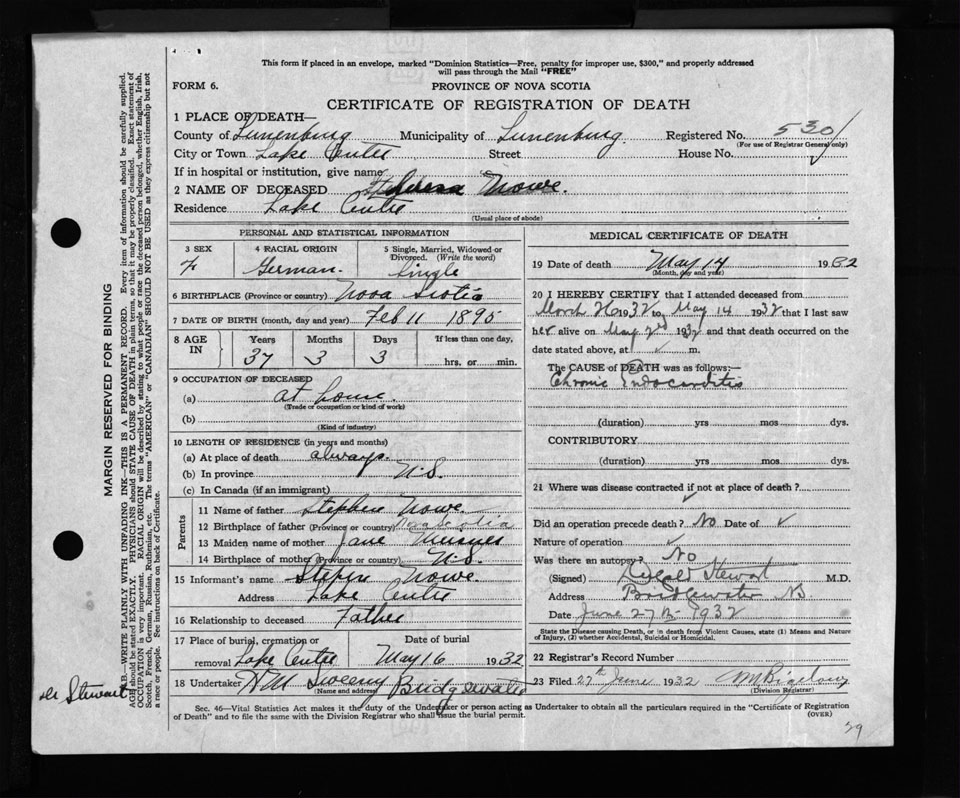 This form if placed in an envelope, marked "Dominion Statistics—Free, penalty for improper use, $300," and properly addressed
will pass through the Mail "FREE"
FORM 6.
PROVINCE OF NOVA SCOTIA
CERTIFICATE OF REGISTRATION OF DEATH
1 PLACE OF DEATH—
County of Lunenburg Municipality of Lunenburg Registered No. 530
(For use of Registrar General only)
City or Town Lake Centre Street House No.
If in hospital or institution, give name
2 NAME OF DECEASED Nowe.
Residence Lake Centre
(Usual place of abode)
PERSONAL AND STATISTICAL INFORMATION
3 SEX 4 RACIAL ORIGIN 5 Single, Married, Widowed or
Divorced. (Write the word)
F German. Single
6 BIRTHPLACE (Province or country) Nova Scotia
7 DATE OF BIRTH (month, day and year) Feb 11 1895
8 AGE IN Years Months Days If less than one day,
37 3 3 hrs. or min.
9 OCCUPATION OF DECEASED
(a) at home.
(Trade or occupation or kind of work)
(b)
(Kind of industry)
10 LENGTH OF RESIDENCE (in years and months)
(a) At place of death always.
(b) In province N.S.
(c) In Canada (if an immigrant)
Parents
11 Name of father Stephen Nowe.
12 Birthplace of father (Province or country)
13 Maiden name of mother Jane
14 Birthplace of mother (Province or country) N.S.
15 Informant's name Stephen Nowe.
Address Lake Centre
16 Relationship to deceased Father
17 Place of burial, cremation or Date of burial
removal Lake Centre May 16 1932
18 Undertaker Sweeny Bridgewater
(Name and address)
MEDICAL CERTIFICATE OF DEATH
19 Date of death May 14 1932
(Month, day and year)
20 I HEREBY CERTIFY that I attended deceased from
March 26 1932 to May 14 1932 that I last saw
her alive on May 2nd 1932 and that death occurred on the
date stated above, at ✓ m.
The CAUSE of DEATH was as follows:—
Chronic Endocarditis
(duration) yrs mos dys.
CONTRIBUTORY
(duration) yrs. mos. dys.
21 Where was disease contracted if not at place of death?
✓
Did an operation precede death? No Date of ✓
Nature of operation ✓
Was there an autopsy? No
(Signed) Stewart M.D.
Address Bridgewater NS
Date June 27th 1932
State the Disease causing Death, or in death from Violent Causes, state (1) Means and Nature
of Injury, (2) whether Accidental, Suicidal or Homicidal.
22 Registrar's Record Number
23 Filed 27th June 1932
(Division Registrar)
Sec. 46—Vital Statistics Act makes it the duty of the Undertaker or person acting as Undertaker to obtain all the particulars required in the "Certificate of Registration
of Death" and to file the same with the Division Registrar who shall issue the burial permit.
(OVER)
MARGIN RESERVED FOR BINDING
N.B.—WRITE PLAINLY WITH UNFADING INK—THIS IS A PERMANENT RECORD. Every item of information should be carefully supplied.
AGE should be stated EXACTLY. PHYSICIANS should STATE CAUSE OF DEATH in plain terms, so that it may be properly classified. Exact statement of
OCCUPATION is very important. RACIAL ORIGIN will be described by stating to what people or race the deceased person belonged, whether English, Irish,
Scotch, French, German, Russian, Ruthenian, etc. The terms "AMERICAN" or "CANADIAN" SHOULD NOT BE USED as they express citizenship but not
a race or people. See instructions on back of Certificate.
Stewart